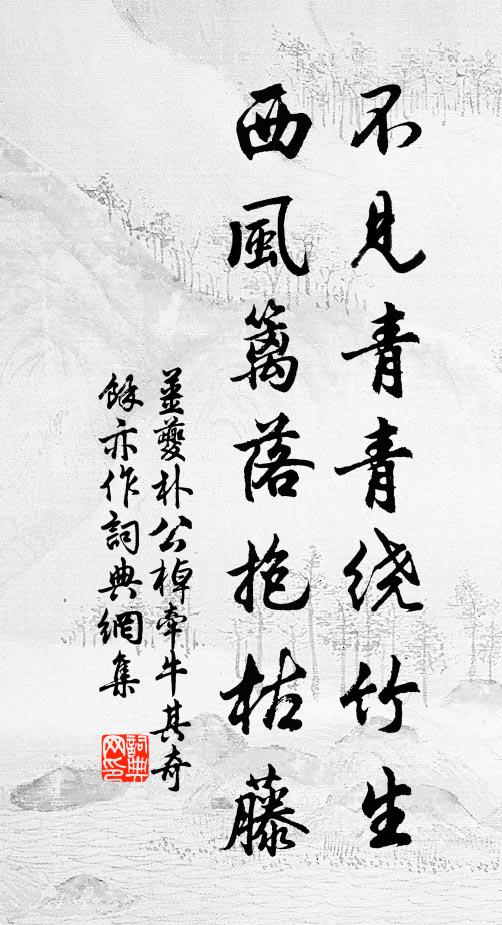 不見青青绕竹生
西風篱落抱枯藤
薑夔朴公悼牽牛其奇
餘亦作詞典網集
詞典
网印